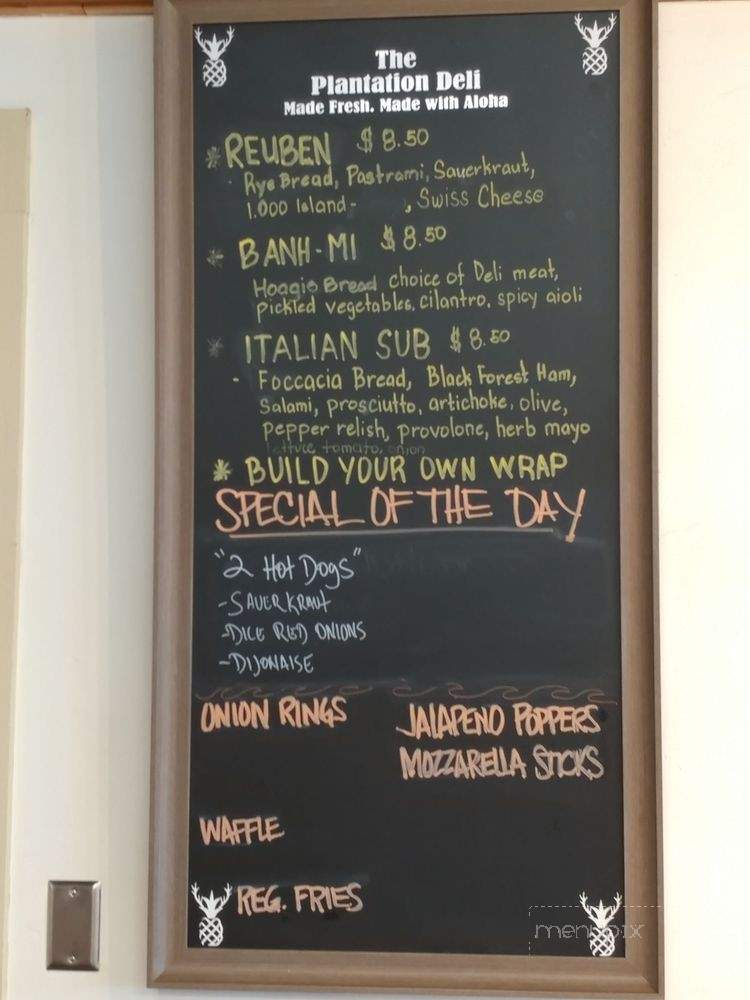 The
Plantation Deli
Made Fresh. Made with Aloha
* REUBEN $ 8.50
- Rye Bread, Pastrami, Sauerkraut,
1.000 Island- , Swiss Cheese
* BANH-MI $ 8.50
Hoagie Bread choice of Deli meat,
pickled vegetables, cilantro, spicy aioli
* ITALIAN SUB $ 8.50
- Foccacia Bread, Black Forest Ham,
Salami, prosciutto, artichoke, olive,
pepper relish, provolone, herb mayo
lettuce tomato, onion
* BUILD YOUR OWN WRAP
SPECIAL OF THE DAY
"2 Hot Dogs"
-SAUERKRAUT
-DICE RED ONIONS
-DIJONAISE
ONION RINGS
JALAPENO POPPERS
MOZZARELLA STICKS
WAFFLE
REG. FRIES
menupix